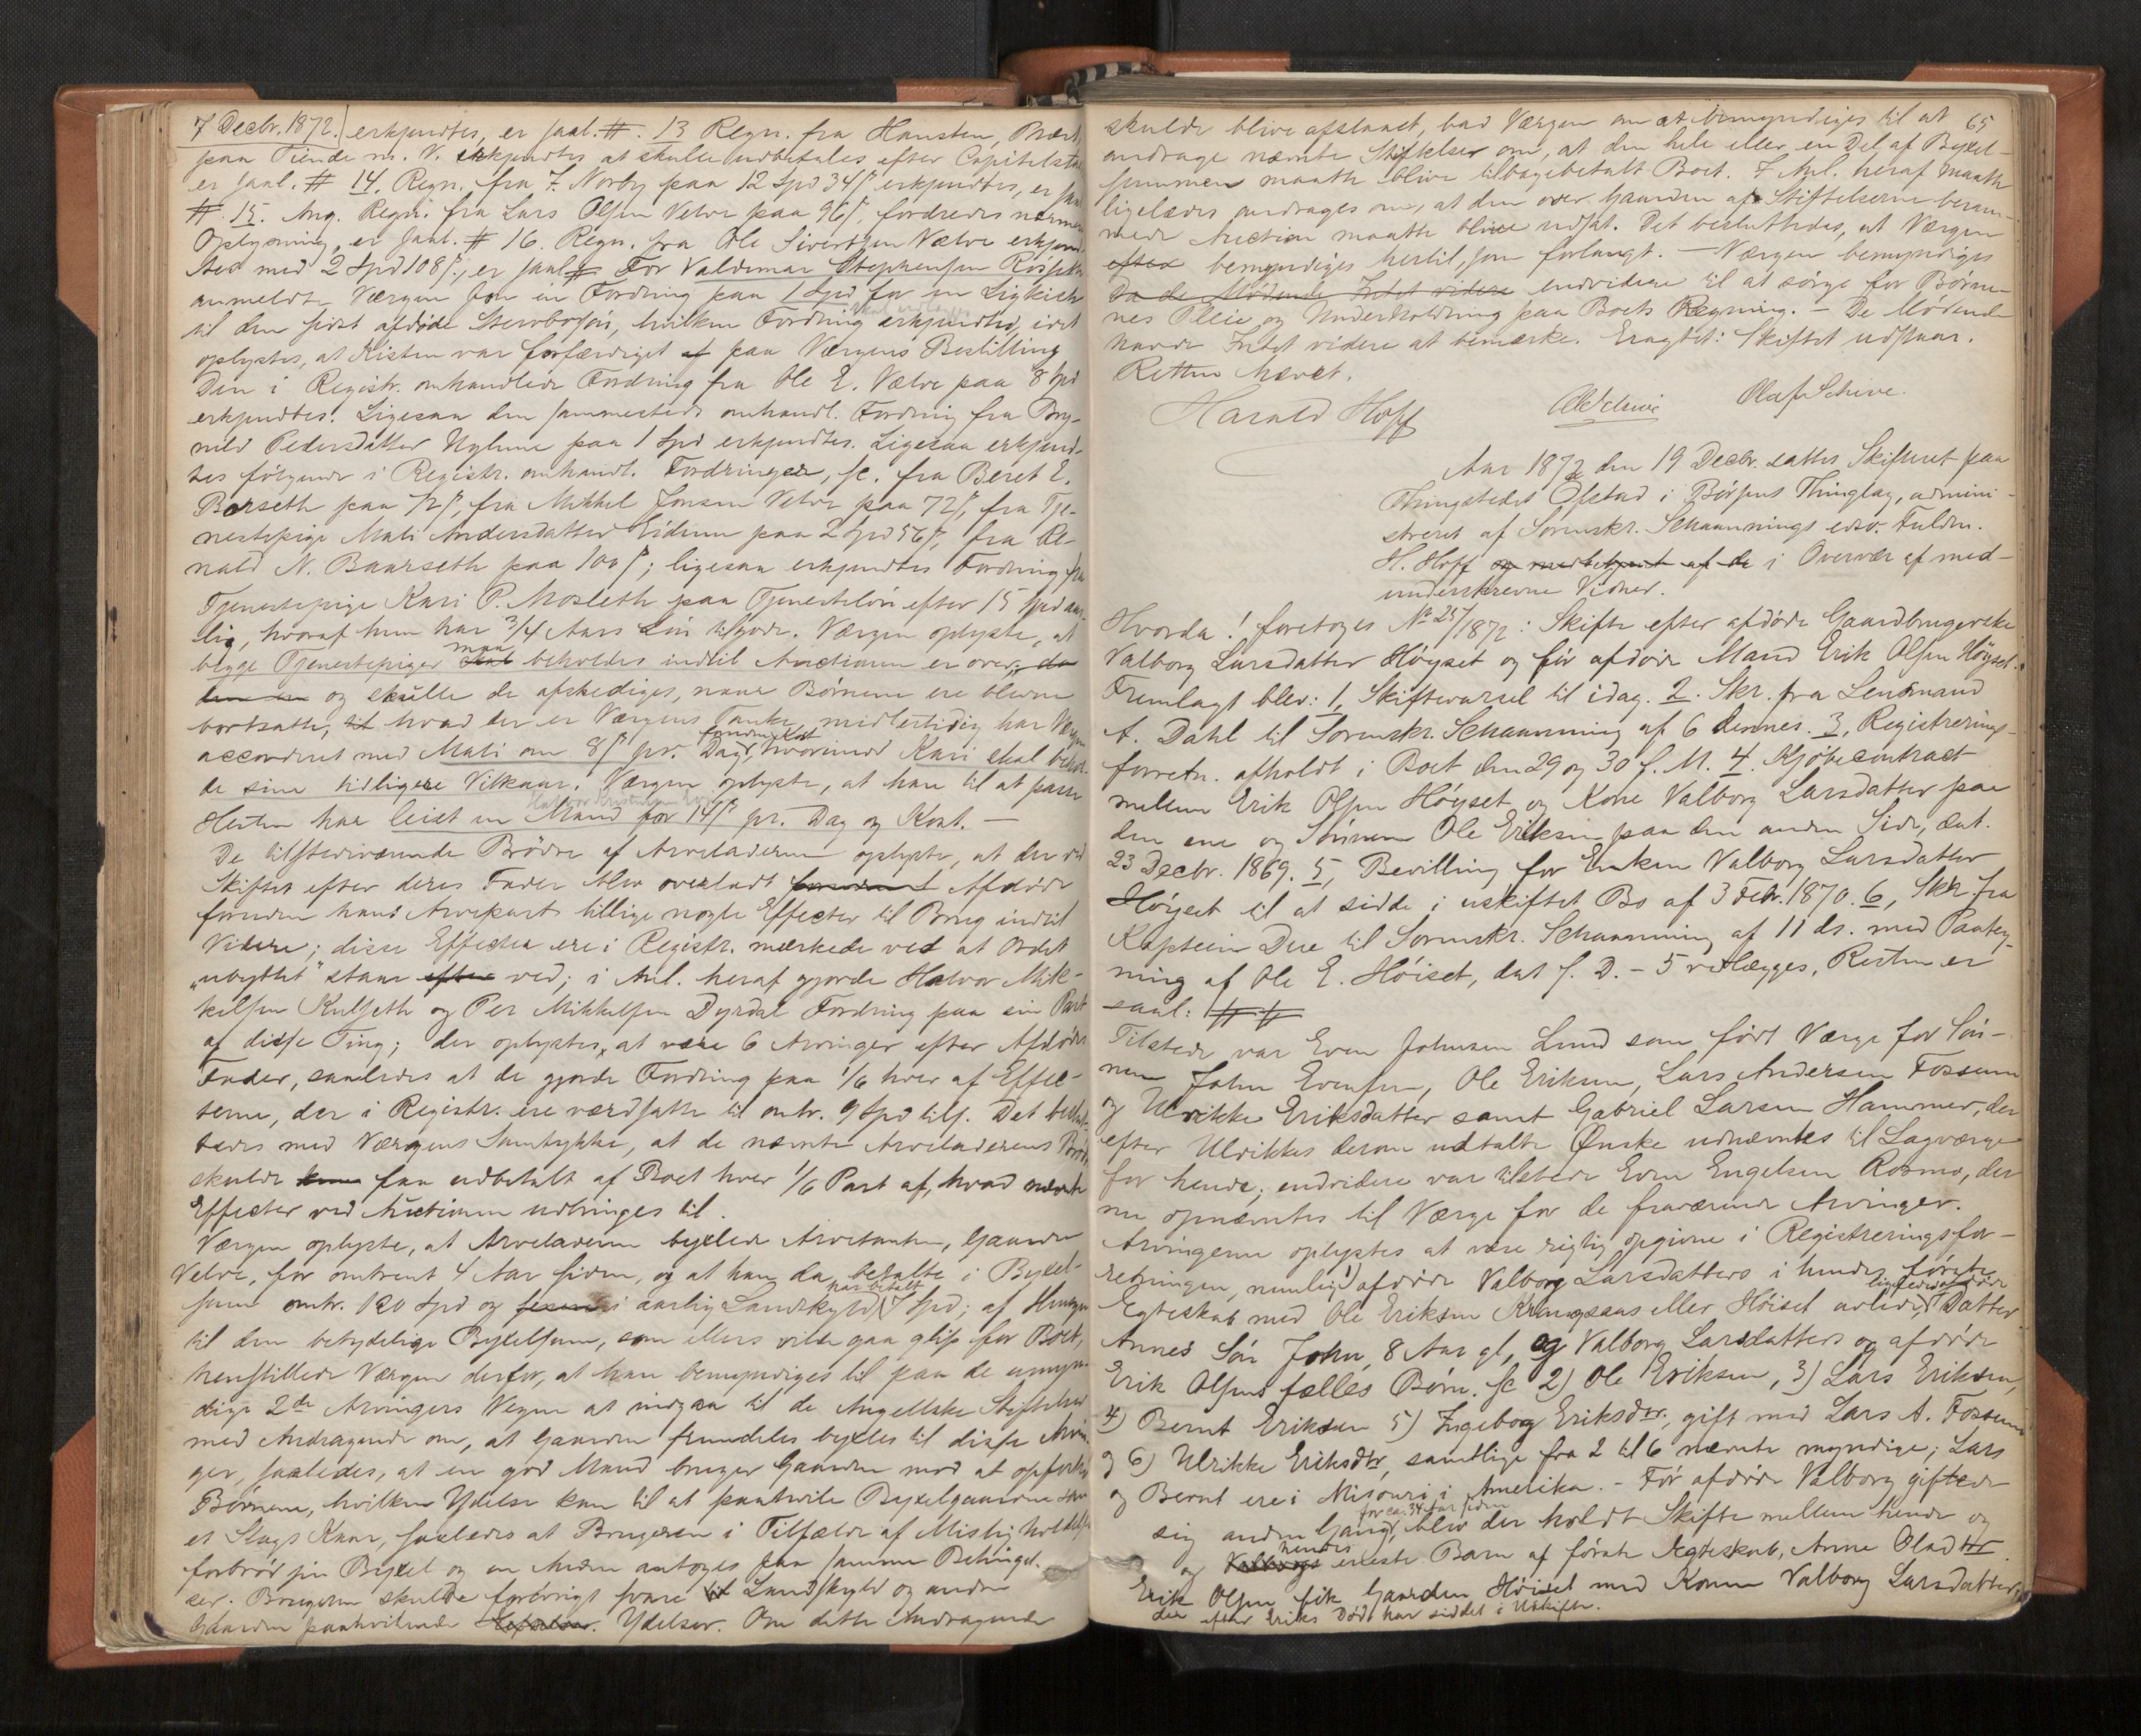 7 Decbr. 1872. erkjendtes, er saal. #. 13 Regn. fra Hansten,
paa Tiende m. V. erkjendtes at skulle udbetales efter Capitelstaxt
er saal. # 14. Regn. fra F. Norby paa 12 Spd 34 ß erkjendtes, er saal.
#. 15. Ang. Regn. fra Lars Olsen Velve paa 96 ß, fordredes nærmere
Oplysning, er saal. # 16. Regn. fra Ole Sivertsen Vælve erkjend-
tes med 2 Spd 108 ß, er saal # For Valdemar Stephensen
anmeldte Værgen en Fordring paa 1 Spd for en Ligkiste
til den sidst afdøde Stervbosøn, hvilken Fordring erkjendtes, idet
oplystes, at Kisten var forfærdiget af paa Værgens Bestilling
Den i Registr. omhandlede Fordring fra Ole E. Vælve paa 8 Spd
erkjendtes. Ligesaa den sammesteds omhandl. Fordring fra Bry-
nild Pedersdatter Nyhuus paa 1 Spd erkjendtes. Ligesaa erkjend-
tes følgende i Registr. omhandl. Fordringer, sc. fra Beret E.
Borseth paa 72 ß, fra Mikkel Jonsen Velve paa 72 ß, fra Tje-
nestepige Mali Andersdatter Eidum paa 2 Spd 56 ß, fra Re-
nald N. Baarseth paa 100 ß; ligesaa erkjendtes Fordring fra
Tjenestepige Kari P. Mosleth paa Tjenesteløn efter 15 Spd aar-
lig, hvoraf hun har 3/4 Aars Løn tilgode. Værgen oplyste, at
begge Tjenestepiger skal maa beholdes indtil Auctionen er over, da
og skulle de afskediges, naar Børnene ere blevne
bortsatte, til hvad der er Værgens Tanke, midlertidig har Værgen
accorderet med Mali om 8 ß pr. Dag foruden Kost, hvorimod Kari skal behol-
de sine tidligere Vilkaar. Værgen oplyste, at han til at passe
Hesten har leiet en Mand for 14 ß pr. Dag og Kost. —
De tilstedeværende Brødre af Arveladeren oplyste, at der ved
Skiftet efter deres Fader blev overladt Afdøde
foruden hans Arvepart tillige nogle Effecter til Brug indtil
Videre; disse Effecter ere i Registr. mærkede ved at Ordet
„ubyttet" staar efter ved; i Anl. heraf gjorde Halvor Mik-
kelsen Kulseth og Per Mikkelsen Dyrdal Fordring paa sin Part
af disse Ting; der oplystes, at være 6 Arvinger efter Afdødes
Fader, saaledes at de gjorde Fordring paa 1/6 hver af Effec-
terne, der i Registr. ere værdsatte til omtr. 9 Spd tils. Det beslut-
tedes med Værgens Samtykke, at de nævnte Arveladerens Brødre
skulde faa udbetalt af Boet hver 1/6 Part af, hvad nævnte
Effecter ved Auctionen udbringes til.
Værgen oplyste, at Arveladeren bygslede Gaarden
Velve, for omtrent 4 Aar siden, og at han da betalte i Byxel-
sum omtr. 120 Spd og i aarlig Landskyld har betalt 7 Spd; af Hensyn
til den betydelige Byxelsum, som ellers vilde gaa glip for Boet,
henstillede Værgen derfor, at han bemyndiges til paa de umyn-
dige 2de Arvingers Vegne at indgaa til de Angellske Stiftelser
med Andragende om, at Gaarden fremdeles byxles til disse Arvin-
ger, saaledes, at en god Mand bruger Gaarden mod at opfostre
Børnene, hvilken Ydelse kom til at paahvile Byxelgaarden som
et Slags Kaar, saaledes at Brugeren i Tilfælde af Misligholdelse
forbrød sin Byxel og en Anden antoges paa samme Betingel-
ser. Brugeren skulde forøvrigt svare til Landskyld og andre
Gaarden paahvilende Ydelser. Om dette Andragende
65
skulde blive afslaaet, bad Værgen om at bemyndiges til at
andrage nævnte Stiftelser om, at den hele eller en Del af Byxel-
summen maatte blive tilbagebetalt Boet. I Anl. heraf maatte
ligeledes andrages om, at den over Gaarden af Stiftelserne beram-
mede Auction maatte blive udsat. Det besluttedes, at Værgen
efter bemyndiges hertil, som forlangt. — Værgen bemyndiges
Da de Mødende Intet videre endvidere til at sørge for Børne-
nes Pleie og Underholdning paa Boets Regning. — De Mødende
havde Intet videre at bemærke. Eragtet: Skiftet udstaar.
Retten hævet.
Harald Hoff Olaf Schive.
Aar 1872 den 19 Decbr. sattes Skifteret paa
Thingstedet Ølstad i Børsens Thinglag, admini-
streret af Sorenskr. Schaannings edsv. Fuldm.
H. Hoff og medbetjent af de i Overvær af med-
underskrevne Vidner.
Hvorda! foretoges No 25/1872: Skifte efter afdøde Gaardbrugerske
Valborg Larsdatter Høyset og før afdøde Mand Erik Olsen Høyset.
Fremlagt blev: 1, Skiftevarsel til idag. 2. Skr. fra Lensmand
A. Dahl til Sorenskr. Schaanning af 6 dennes. 3, Registrerings-
forretn. afholdt i Boet den 29 og 30 f. M. 4. Kjøbecontract
mellem Erik Olsen Høyset og Kone Valborg Larsdatter paa
den ene og Sønnen Ole Eriksen paa den anden Side, dat.
23 Decbr. 1869. 5, Bevilling for Enken Valborg Larsdatter
Høyset til at sidde i uskiftet Bo af 3 Febr. 1870. 6, Skr. fra
Kaptein Due til Sorenskr. Schaanning af 11 ds. med Paateg-
ning af Ole E. Høiset, dat s. D. — 5 vedlægges, Resten er
saal: #
Tilstede var Even Johnsen Lund som født Værge for Søn-
nen John Evensen, Ole Eriksen, Lars Andersen Fossum
og Ulrikke Eriksdatter samt Gabriel Larsen Hammer, der
efter Ulrikkes derom udtalte Ønske udnævntes til Lagværge
for hende; endvidere var tilstede Even Engelsen Rosmo, der
nu opnævntes til Værge for de fraværende Arvinger.
Arvingerne oplystes at være rigtig opgivne i Registreringsfor-
retningen, nemlig 1) afdøde Valborg Larsdatters i hendes første
Egteskab med Ole Eriksen Krangsaas eller Høiset avlede, ligeledes afdøde Datter
Annes Søn John, 8 Aar gl, og Valborg Larsdatters og afdøde
Erik Olsens fælles Børn. sc 2) Ole Eriksen, 3) Lars Eriksen,
4) Bernt Eriksen 5) Ingeborg Eriksdtr., gift med Lars A. Fossum
og 6) Ulrikke Eriksdtr, samtlige fra 2 til 6 nævnte myndige; Lars
og Bernt ere i Misouri i Amerika. — Før afdøde Valborg giftede
sig anden Gang, for ca. 34 Aar siden blev der holdt Skifte mellem hende og
og Valborgs hendes eneste Barn af første Ægteskab, Anne Olsdtr.
Erik Olsen fik Gaarden Høiset med Konen Valborg Larsdatter,
der efter Eriks Død har siddet i Uskifte.